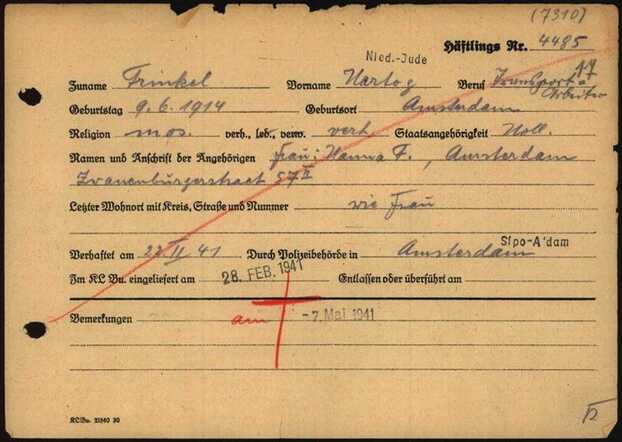 (7310)
Häftlings Nr. 4485
Nied.-Jude 17
Zuname Frinkel Vorname Hartog Beruf Transport=
Arbeiter
Geburtstag 9.6.1914 Geburtsort Amsterdam
Religion mos. verh., led., verw. verh. Staatsangehörigkeit Holl.
Namen und Anschrift der Angehörigen Frau: Hanna F., Amsterdam
Zwanenburgerstraat 57 II
Letzter Wohnort mit Kreis, Straße und Nummer wie Frau
Sipo-A'dam
Verhaftet am 22 II 41 Durch Polizeibehörde in Amsterdam
Im KL Bu. eingeliefert am 28. FEB. 1941 Entlassen oder überführt am
Bemerkungen am - 7. Mai 1941